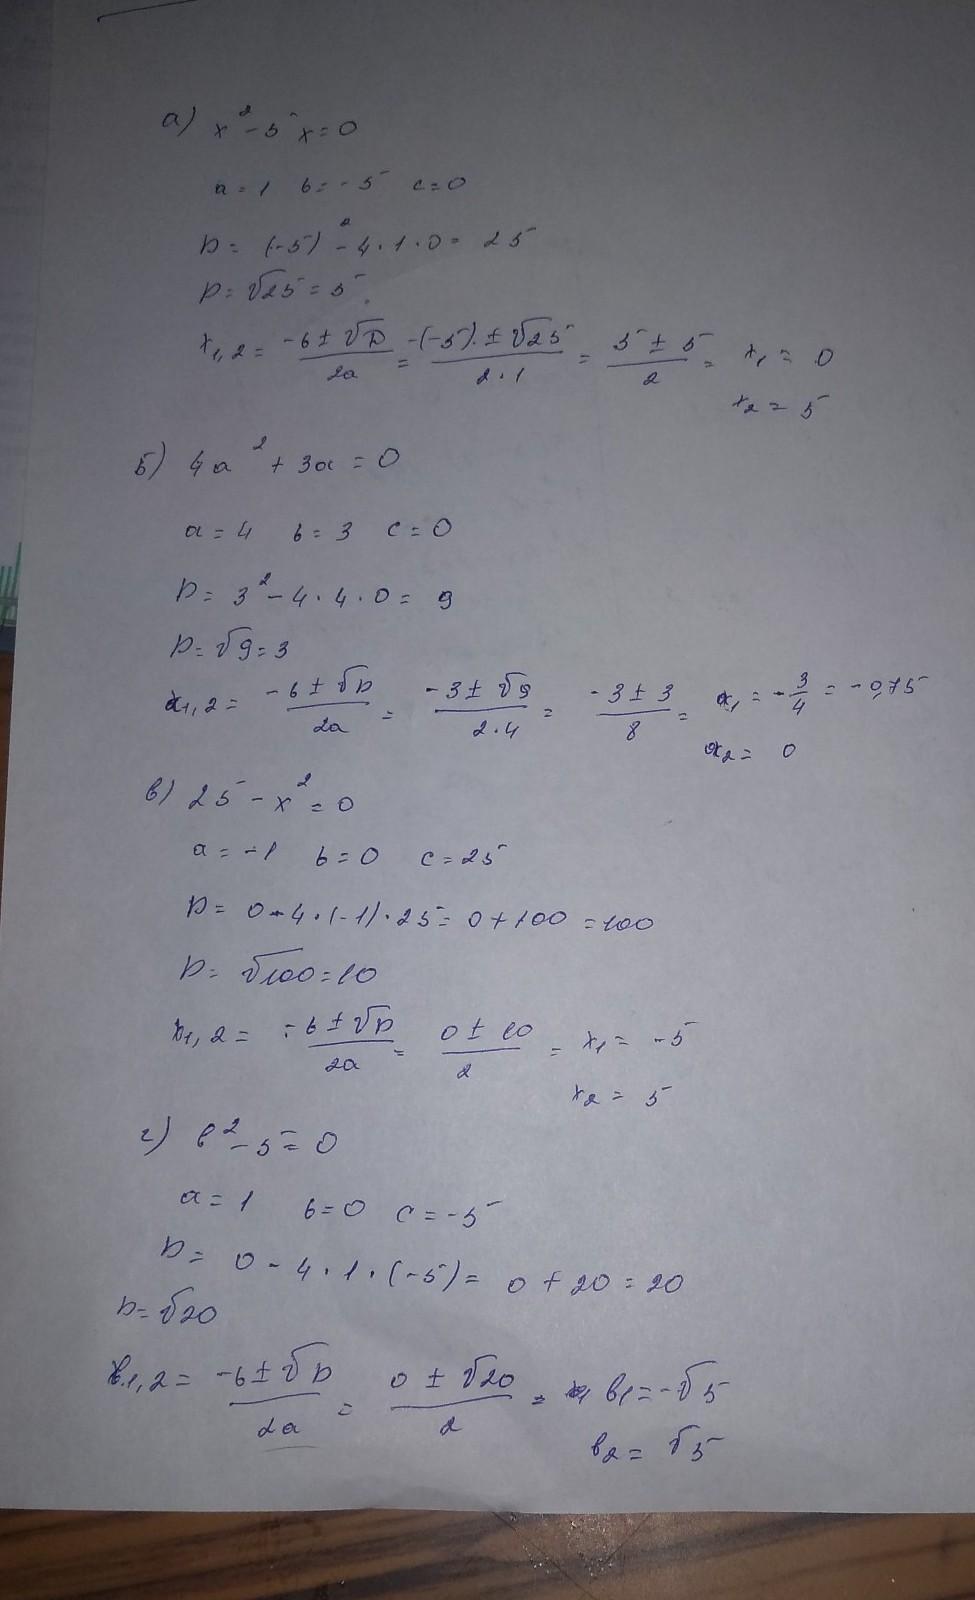 а) x² - 5x = 0
a = 1 b = -5 c = 0
D = (-5)² - 4 · 1 · 0 = 25
D = √25 = 5
x₁,₂ = (-b ± √D)/(2a) = (-(-5) ± √25)/(2 · 1) = (5 ± 5)/2 = x₁ = 0
x₂ = 5
б) 4a² + 3a = 0
a = 4 b = 3 c = 0
D = 3² - 4 · 4 · 0 = 9
D = √9 = 3
a₁,₂ = (-b ± √D)/(2a) = (-3 ± √9)/(2 · 4) = (-3 ± 3)/8 = a₁ = -3/4 = -0,75
a₂ = 0
в) 25 - x² = 0
a = -1 b = 0 c = 25
D = 0 - 4 · (-1) · 25 = 0 + 100 = 100
D = √100 = 10
x₁,₂ = (-b ± √D)/(2a) = (0 ± 10)/2 = x₁ = -5
x₂ = 5
г) b² - 5 = 0
a = 1 b = 0 c = -5
D = 0 - 4 · 1 · (-5) = 0 + 20 = 20
D = √20
b₁,₂ = (-b ± √D)/(2a) = (0 ± √20)/2 = b₁ = -√5
b₂ = √5